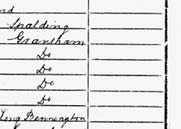 Spalding
Grantham
Do
Do
Do
Do
Long Bennington